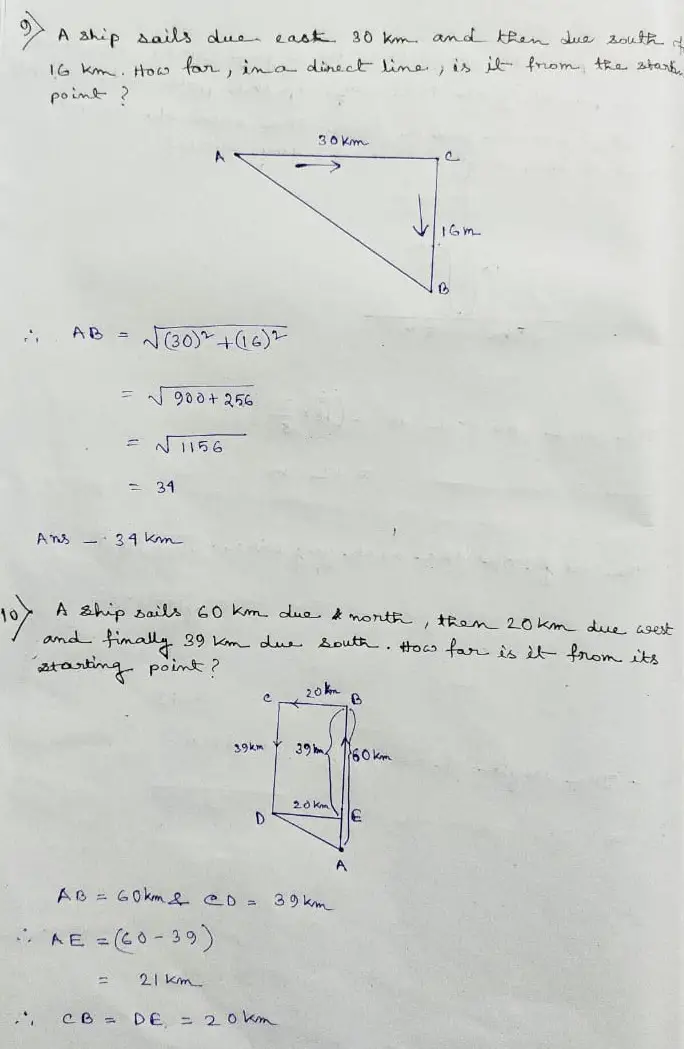 9) A ship sails due east 30 km and then due south
16 km. How far, in a direct line, is it from the
point ?
30 km
A
C
16 m
B
∴ AB = √(30)² + (16)²
= √900 + 256
= √1156
= 34
Ans - 34 km
10) A ship sails 60 km due north, then 20 km due west
and finally 39 km due south. How far is it from its
starting point ?
20 km
C B
39 km 39 km 60 km
20 km
D E
A
AB = 60 km & CD = 39 km
∴ AE = (60 - 39)
= 21 km
∴ CB = DE = 20 km